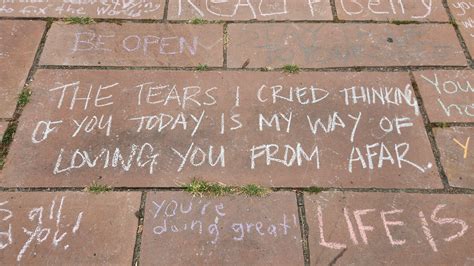 READ A
Jelly
BE OPEN
THE TEARS I CRIED THINKING
OF YOU TODAY IS MY WAY OF
LOVING YOU FROM AFAR.
You
all
you.
You're
doing great!
LIFE IS